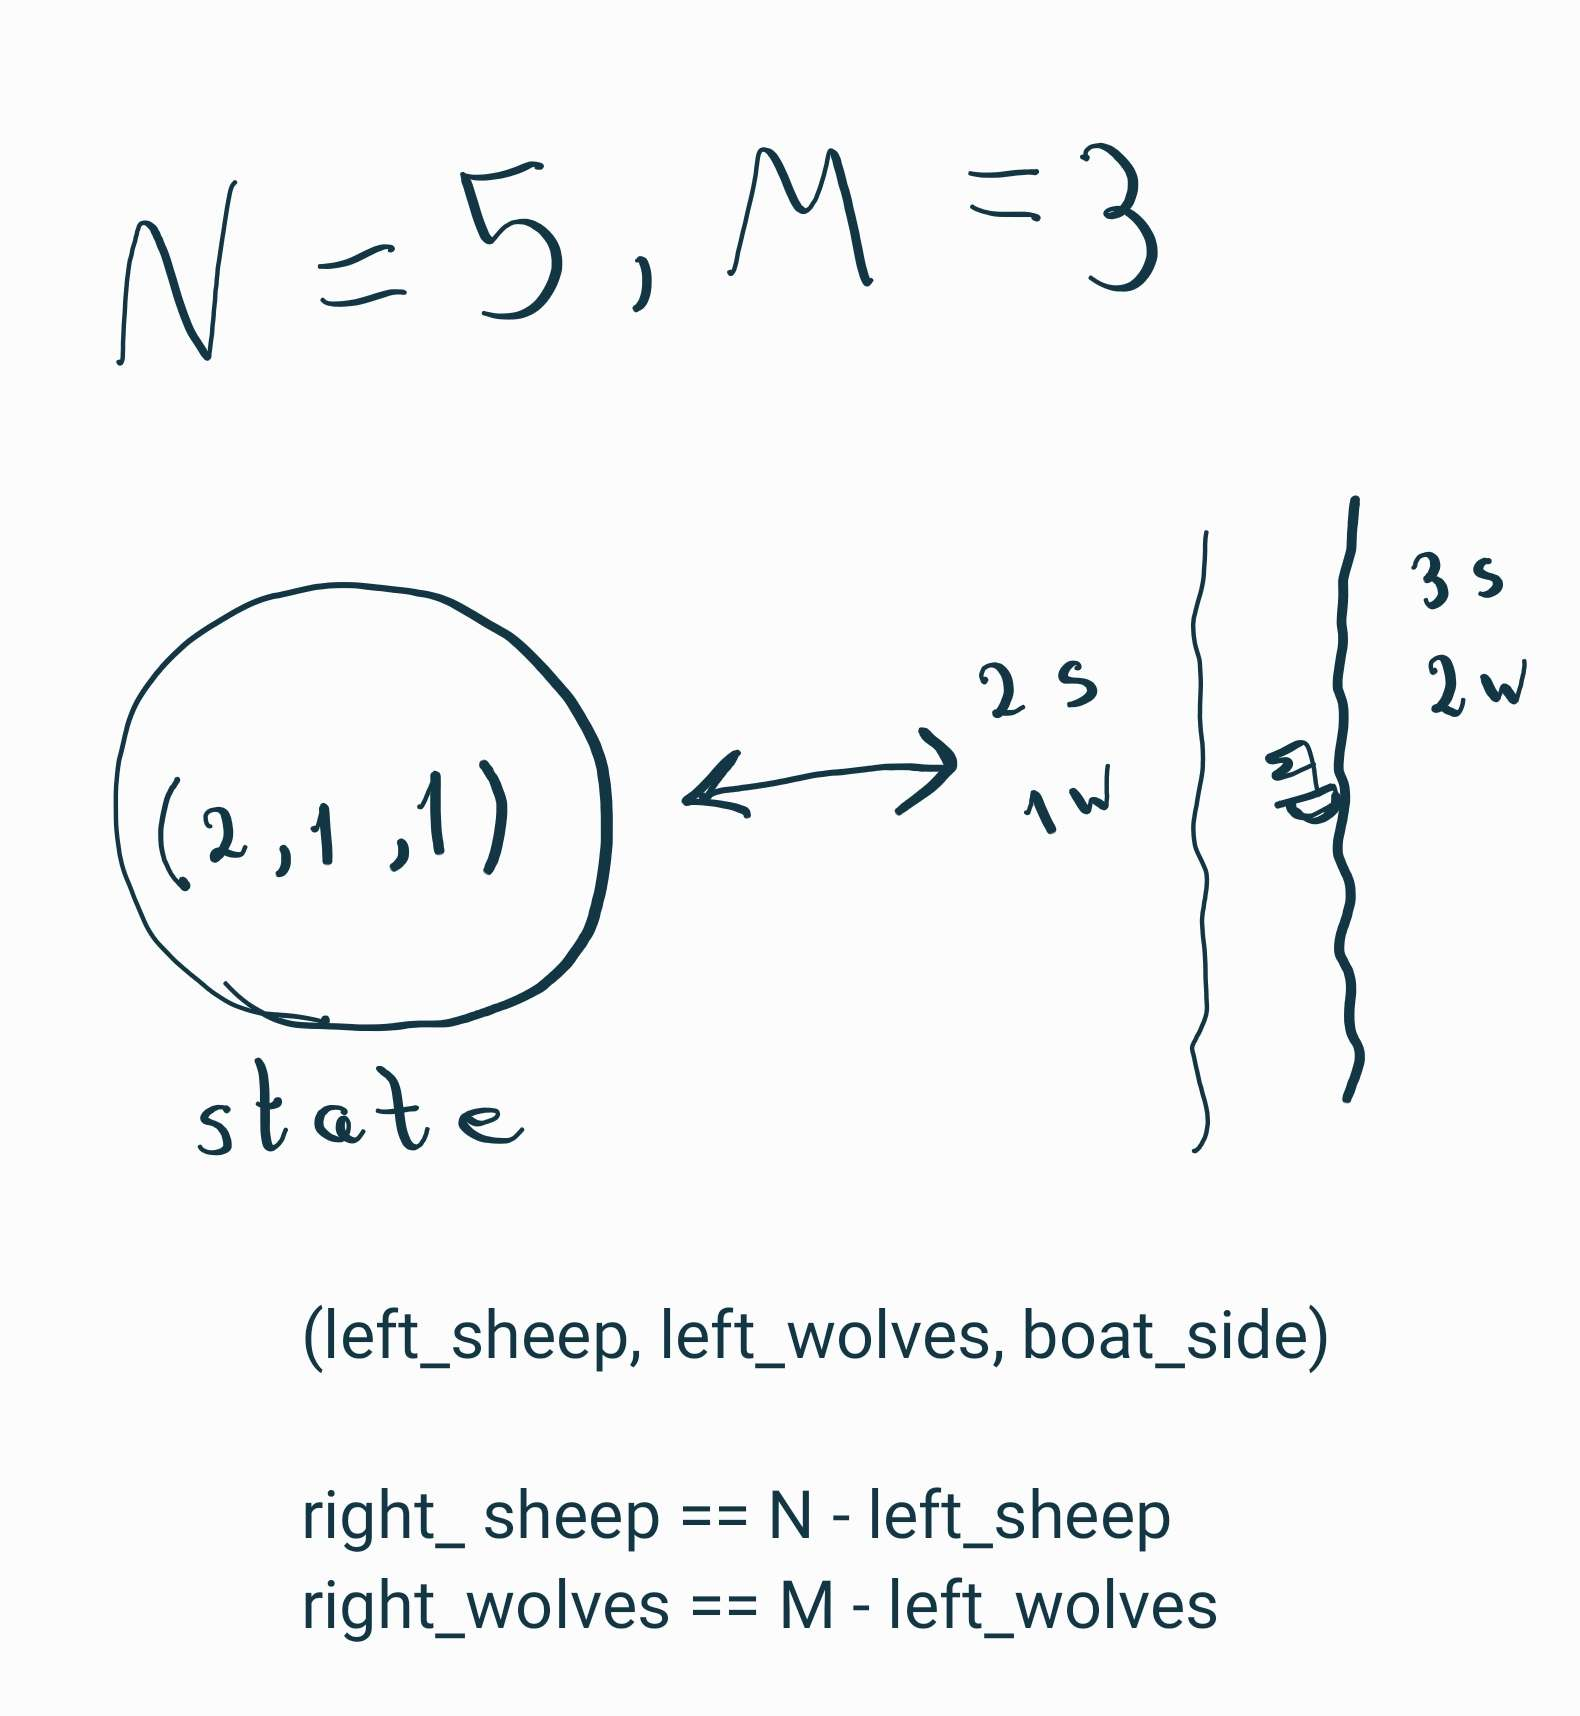 N = 5, M = 3
3 s
2 s
2 w
(2,1,1)
1 w
state
(left_sheep, left_wolves, boat_side)
right_ sheep == N - left_sheep
right_wolves == M - left_wolves